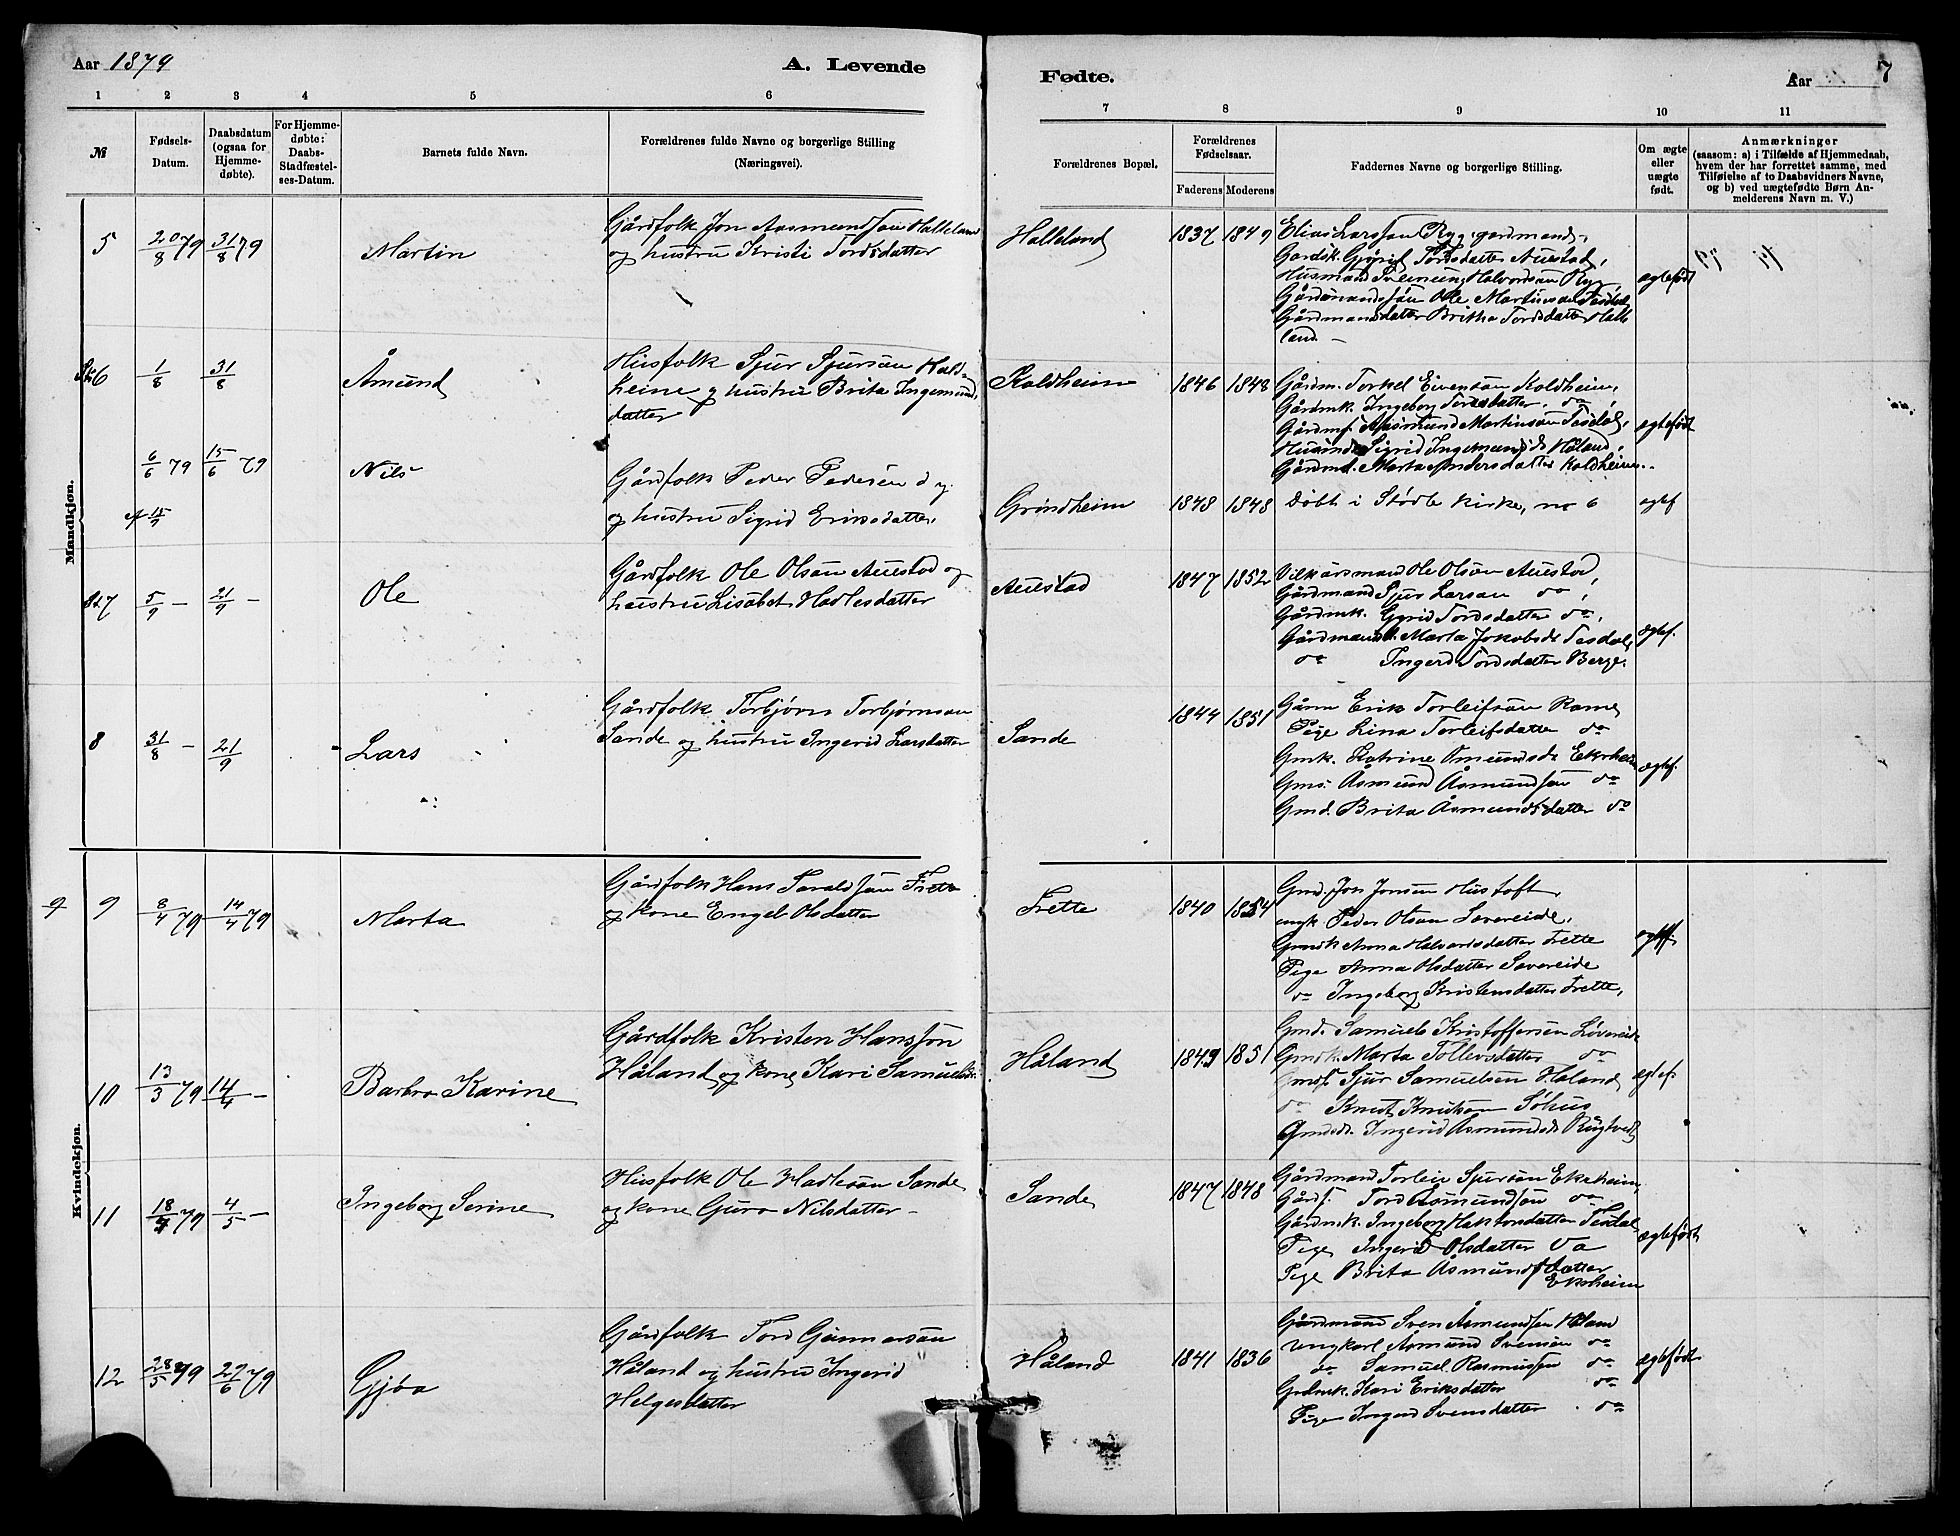 Aar 1879
A. Levende
Fødte.
Aar 7
1 2 3 4 5 6 7 8 9 10 11
№
Fødsels-
Datum.
Daabsdatum
(ogsaa for
Hjemme-
døbte).
For Hjemme-
døbte:
Daabs-
Stadfæstel-
ses-Datum.
Barnets fulde Navn.
Forældrenes fulde Navne og borgerlige Stilling
(Næringsvei).
Forældrenes Bopæl.
Forældrenes
Fødselsaar.
Faderens Moderens
Faddernes Navne og borgerlige Stilling.
Om ægte
eller
uægte
født.
Anmærkninger
(saasom: a) i Tilfælde af Hjemmedaab,
hvem der har forrettet samme, med
Tilføielse af to Daabsvidners Navne,
og b) ved uægtefødte Børn An-
melderens Navn m. V.)
Mandkjøn.
5 20/8 79 31/8 79 Martin
Gårdfolk Jon Aasmundsøn Halleland
og hustru Kristi Tordsdatter
Halleland 1837 1849
Elias Larssøn Ryg, gardmand,
Gardsk. Gjörif Tordsdatter Auestad,
Husmand Halvordsøn Ryg,
Gårdmandssøn Ole Martinsøn Tesdal
Gårdmansdatter Britha Tordsdatter Halle
land. —
ægtefødt
6 1/8 31/8 Åmund
Husfolk Sjur Sjursøn Kold-
heim og hustru Brita Ingemund.
datter
Koldheim 1846 1848
Gårdm. Torkel Eivensøn Koldheim,
Gårdmk. Ingeborg Toresdatter do,
Gårdms. Aasmund Martinsøn Tesdal,
Sigrid Ingemundsd. Håland,
Gårdmd. Marta Andersdatter Koldheim.
ægtefødt
6/6 79 15/6 79 Nils
Gårdfolk Peder Pedersen d y.
og hustru Sigrid Eriksdatter.
Grindheim 1848 1848 Döbt i Stödle kirke, no 6 ægtef
7 5/9 — 21/9 — Ole
Gårdfolk Ole Olsøn Auestad og
hustru Lisabet Hadlesdatter
Auestad 1847 1852
Vilkårsmand Ole Olsøn Auestad,
Gårdmand Sjur Larsøn do,
Gårdmk. Gyrid Tordsdatter do,
Gårdmansd. Marta Jokobsdr Tesdal,
do Ingerd Tordsdatter Berge.
ægtef.
8 31/8 — 21/9 Lars
Gårdfolk Torbjörn Torbjörnsøn
Sande og hustru Ingerid Larsdatter
Sande 1844 1851
Gårm Erik Torleifsøn Rame
Pige Lina Torleifsdatter do
Gmk. Katrine Åmundsdr Ekrheim
Gms. Åsmund Åsmundsøn do
Gmd. Brita Åsmundsdatter do
ægtef.
Kvindekjøn.
9 9 8/4 79 14/4 79 Marta
Gårdfolk Hans Taraldsøn Frette
og kone Engel Olsdatter
Frette 1840 1854
Gmd. Jon Jonsen Hustoft
ungk Peder Olsøn Løvereide,
Gmdk Anna Halvorsdatter Frette
Pige Anna Olsdatter Løvereide
do Ingeborg Kristensdatter Frette,
ægtef.
10 13/3 79 14/4 — Barbro Karine
Gårdfolk Kristen Hanssøn
Håland og kone Kari Samuelsdr.
Håland 1849 1851
Gmd. Samuel Kristoffersen Løvereide
Gmdk. Marta Tollevsdatter do
Gmds. Sjur Samuelsen Håland
do Knut Knutsøn Söhus
Gmdsd. Ingerid Åsmundsdr Rügtvedt
ægtef.
11 18/4 79 4/5 — Ingeborg Serine
Husfolk Ole Hadlesøn Sande
og kone Guro Nilsdatter —
Sande 1847 1848
Gårdmand Torleiv Sjursøn Ekreheim,
Gårds. Tord Åsmundsøn do
Gårdmk. Ingeborg Haktorsdatter Tesdal
Pige Ingerid Olsdatter do
Pige Brita Åsmundsdatter
Ekreheim
ægtefødt
12 28/5 79 22/6 79 Gjöa
Gårdfolk Tord Gunnarsøn
Håland og hustru Ingerid
Helgesdatter
Håland 1841 1836
Gårdmand Sven Åsmundsøn Håland
ungkarl Åsmund Svensøn do
do Samuel Rasmussøn do
Grdmk. Kari Eriksdatter do
Pige Ingerd Svensdatter do
ægtefødt